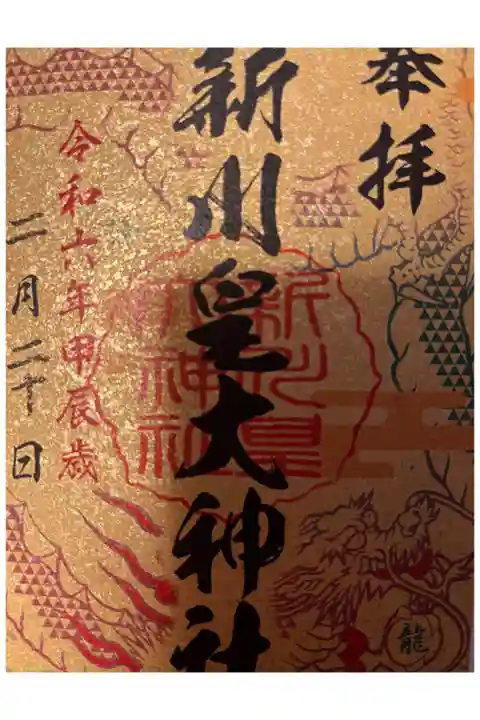 奉拝
新川皇大神社
令和六年甲辰歳
二月二十日
新川皇大神社
龍